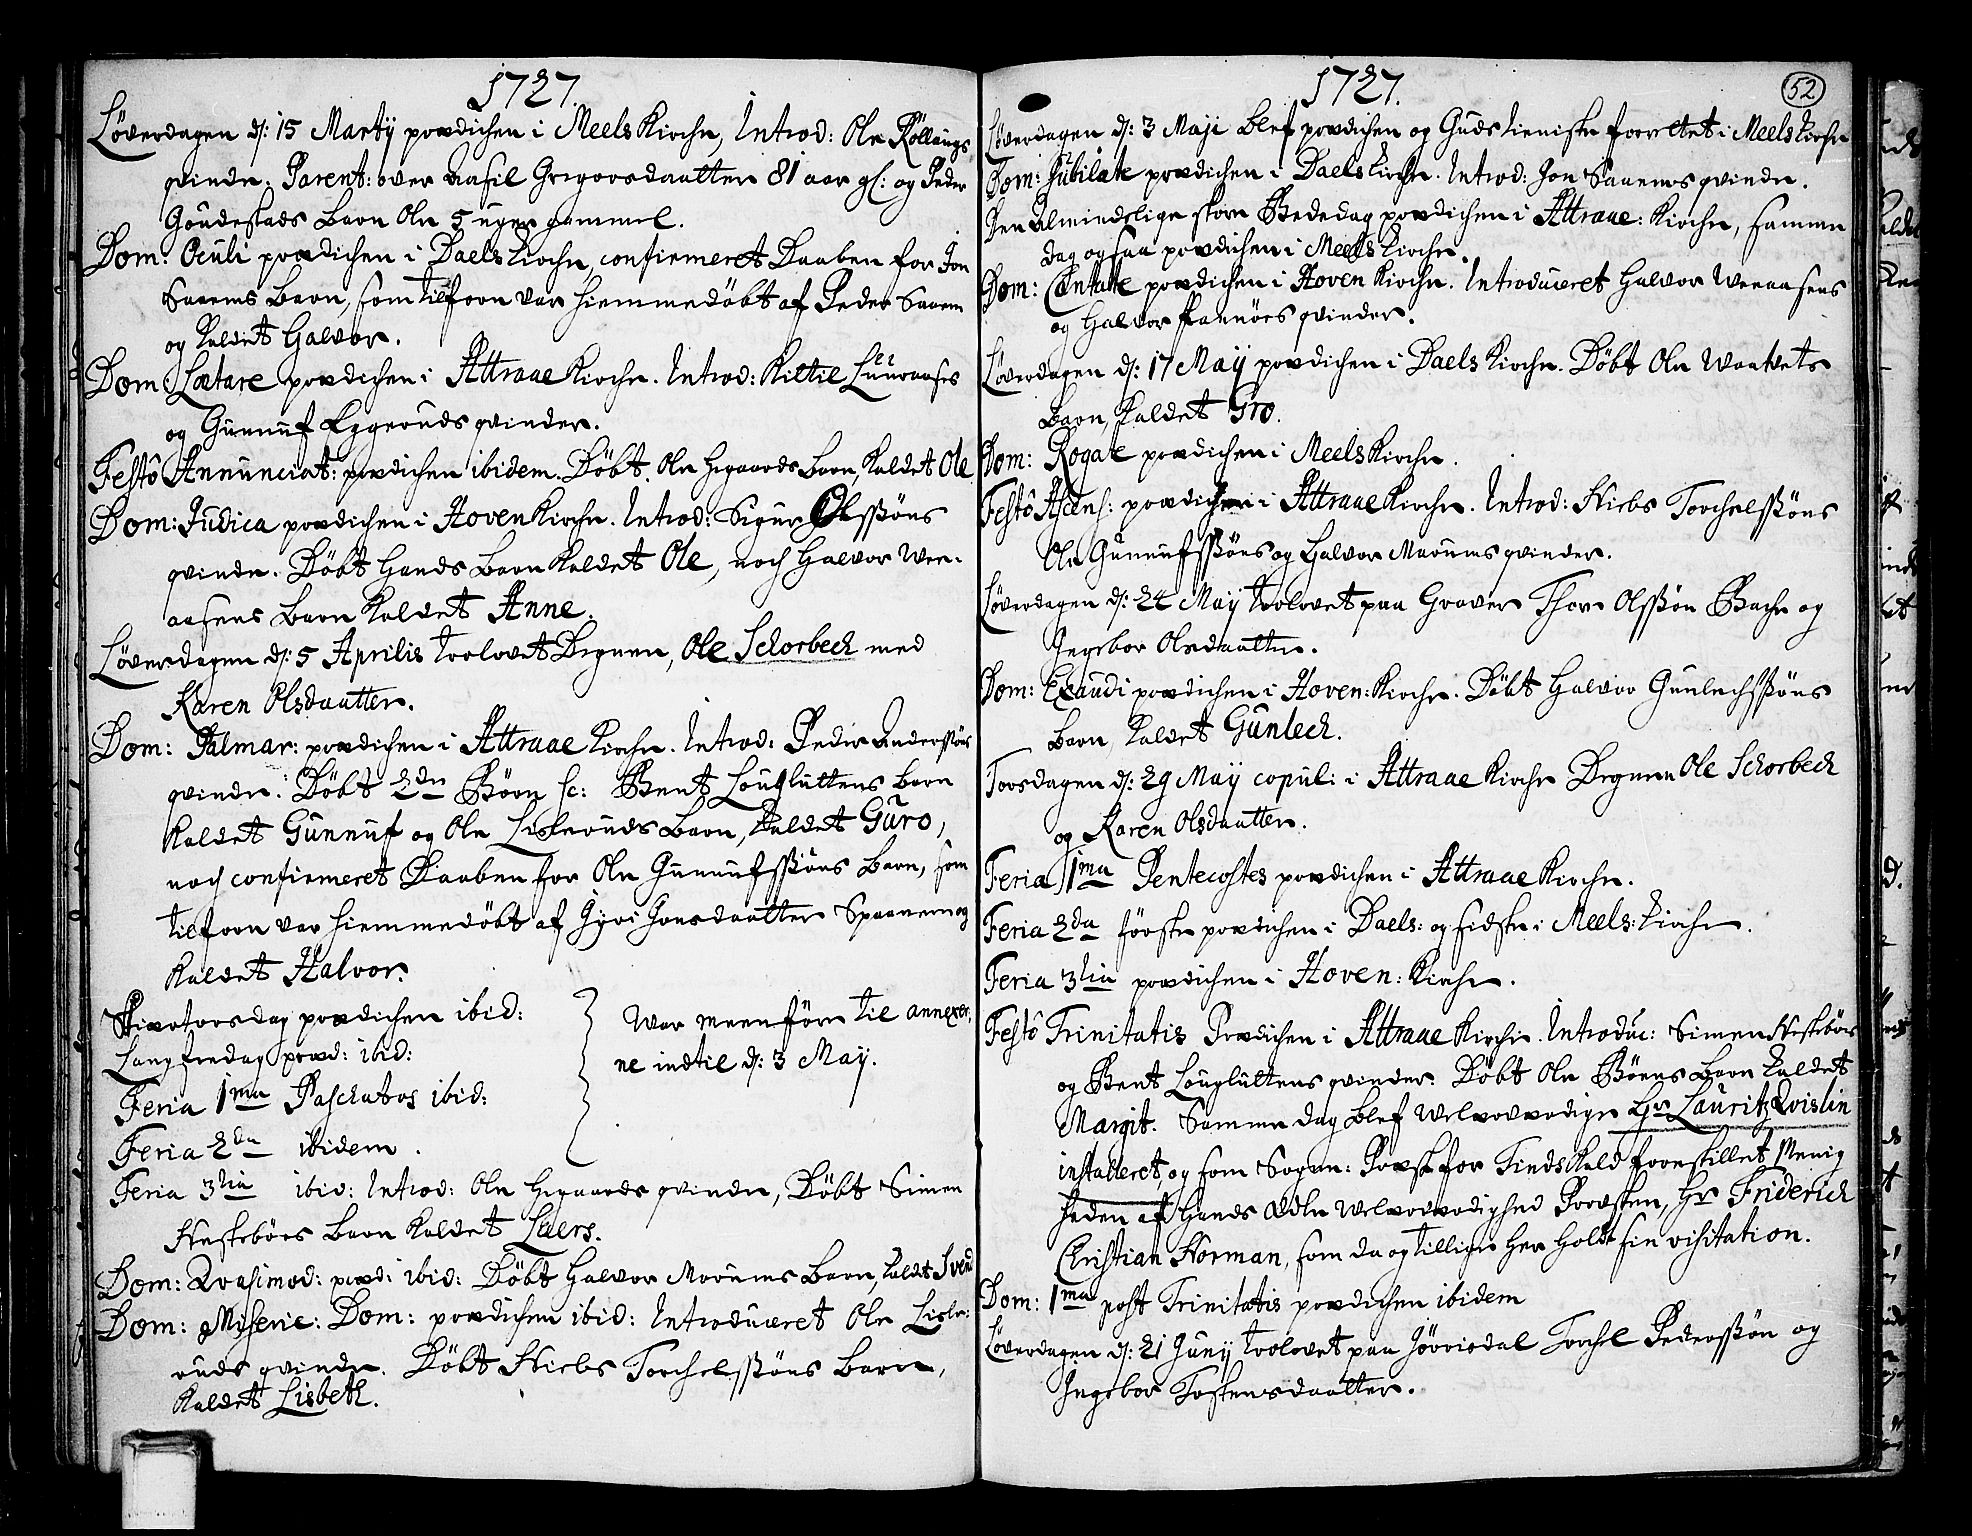 1727.
Løverdagen d: 15 Martij prædichen i Meels Kirche, Introd: Ole Røllaugs
qvinde. Parent: over Aasil Gregorsdaatter 81 aar gl: og Peder
Goudestads Barn Ole 5 uger gammel.
Dom: Oculi prædichen i Daels kirche, confirmeret Daaben for Jon
Saaems Barn, som tilforn var hiemmedøbt af Peder Saaem
og kaldet Halvor.
Dom: Lætare prædichen i Attraae Kirche. Introd: Kittil Luuraases
og Gunnuf Eggeruds qvinder.
Festô Annunciat: prædichen ibidem. Døbt Ole Hegaards Barn, kaldet Ole
Dom: Judica prædichen i Hoven Kirche. Introd: Sigur Olssøns
qvinde. Døbt Hands Barn kaldet Ole, noch Halvor Wer-
aasens Barn kaldet Anne.
Løverdagen d: 5 Aprilis trolovet Degnen, Ole Schorbech med
Karen Olsdaatter.
Dom: Palmar: prædichen i Attraae Kirche. Introd: Peder Anderssøns
qvinde. Døbt 2de Børn sc: Bent Lougluttens Barn
kaldet Gunnuf og Ole Lisleruds Barn, kaldet Guro,
noch confirmeret Daaben for Ole Gunnufssøns Barn, som
tilforn var hiemmedøbt af Gyri Jonsdaatter Spaanem og
kaldet Halvor.
Skiærtorsdag prædichen ibid:
Langfredag præd: ibid:
Feria 1ma Paschatos ibid:
Feria 2da ibidem.
War meenføre til annexer-
ne indtil d: 3 May.
Feria 3tia ibid: Introd: Ole Hegaards qvinde, Døbt Simen
Hestebørs Barn kaldet Laers.
Dom: Qvasimod: præd: ibid: Døbt Halvor Marums Barn, kaldt Svend
Dom: Miserie: Dom: prædichen ibid: Introduceret Ole Lisle-
ruds qvinde. Døbt Niels Torchelssøns Barn,
kaldet Lisbeth.
1727.
52
Løverdagen d: 3 Maji blef prædichen og Guds tieniste forrettet i Meels kirche
Dom: Jubilate prædichen i Daels kirche. Introd: Jon Saaems qvinde.
Den Almindelige store Bededag prædichen i Attraae: Kirche, samme
dag ogsaa prædichen i Meels kirche.
Dom: Cantate prædichen i Hoven Kirche. Introduceret Halvor Weraasens
og Halvor qvinder.
Løverdagen d: 17 Maij prædichen i Daels Kirche. Døbt Ole Waatvets
Barn, kaldet Gro.
Dom: Rogate prædichen i Meels Kirche.
Festô Ascens: prædichen i Attraae Kirche. Introd: Niels Torchelssøns
Ole Gunnufssøns og Halvor Marums qvinder.
Løverdagen d: 24 Maij trolovet paa Graver Thore Olssøn Bache og
Ingebor Olsdaatter.
Dom: Exaudi prædichen i Hoven: Kirche. Døbt Halvor Gunlechssøns
Barn, kaldet Gunlech.
Torsdagen d: 29 Maij copul: i Attraae Kirche Degnen Ole Schorbech
og Karen Olsdaatter.
Feria 1ma Pentecostes prædichen i Attraae Kirche.
Feria 2da første prædichen i Daels: og sidste i Meels: kirche.
Feria 3tia prædichen i Hoven: Kirche.
Festô Trinitatis Prædichen i Attraae Kirche. Introduc: Simen Hestebørs
og Bent Lougluttens qvinder. Døbt Ole Bøens Barn kaldet
Margit. Samme dag blef Welærværdige Hr Lauritz Qvislin
installeret og som Sogne: Præst for Tinds Kald forestillet Menig
heden af Hands Ædle Welærværdighed Provsten, Hr Friderich
Christian Horman, som da og tillige her holdt sin visitation.
Dom: 1ma post Trinitatis prædichen ibidem
Løverdagen d: 21 Junij trolovet paa Jørrisdal Torchel Pederssøn og
Ingebor Tostensdaatter.